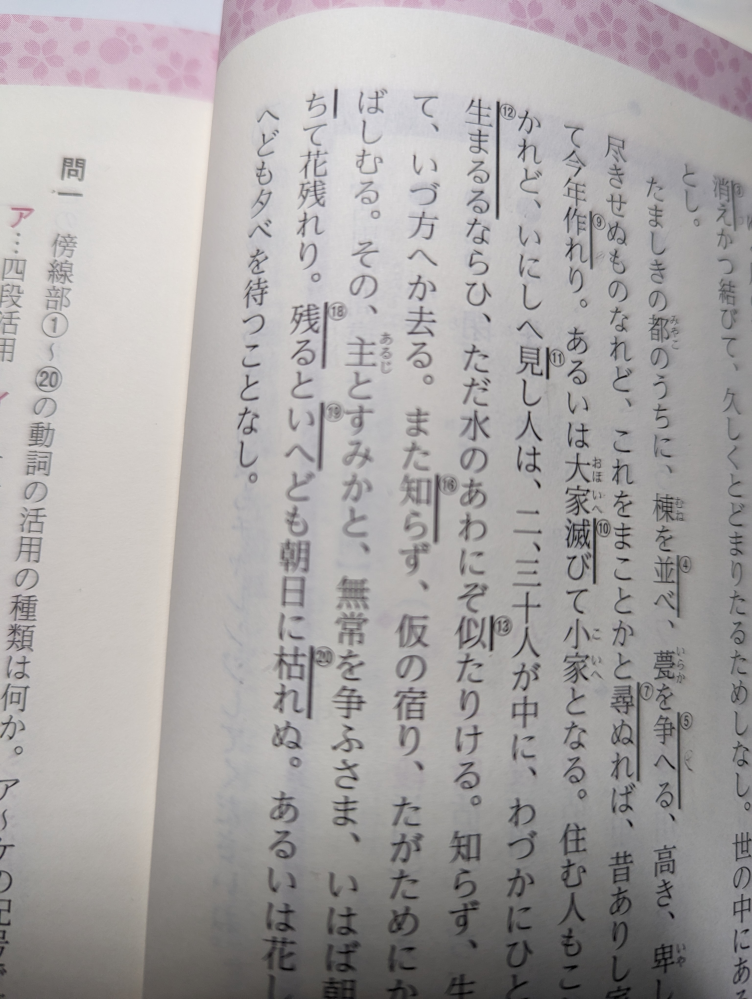 ③消えかつ結びて、久しくとどまりたるためしなし。世の中にあ
とし。
みやこ むね いらか いや
たましきの都のうちに、棟を④並べ、甍を⑤争へる、高き、卑し
尽きせぬものなれど、これをまことかと⑦尋ぬれば、昔ありし
おほいへ こいへ
て今年⑨作れり。あるいは大家⑩滅びて小家となる。住む人もこ
かれど、いにしへ⑪見し人は、二、三十人が中に、わづかにひと
⑫生まるるならひ、ただ水のあわにぞ⑬似たりける。知らず、生
て、いづ方へか去る。また⑯知らず、仮の宿り、たがためにか
あるじ
ばしむる。その、主とすみかと、無常を争ふさま、いはば朝
ちて花残れり。⑱残ると⑲いへども朝日に⑳枯れぬ。あるいは花し
へども夕べを待つことなし。
問一 傍線部①～⑳の動詞の活用の種類は何か。ア～ケの記号で
ア…四段活用